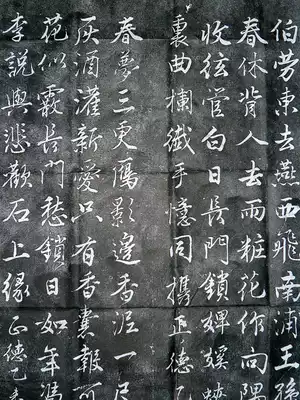 伯劳東去燕西飛南浦王孫
春休背人去雨粧花作向隅
收弦管白日長門鎖婢媄
裏曲欄纖手憶同携正德
春夢三更鴈影邊香泥一尺
灰酒灌新愛只有香囊報可
花似霰長門愁鎖日如年馮
李說與悲歡石上緣正德乙